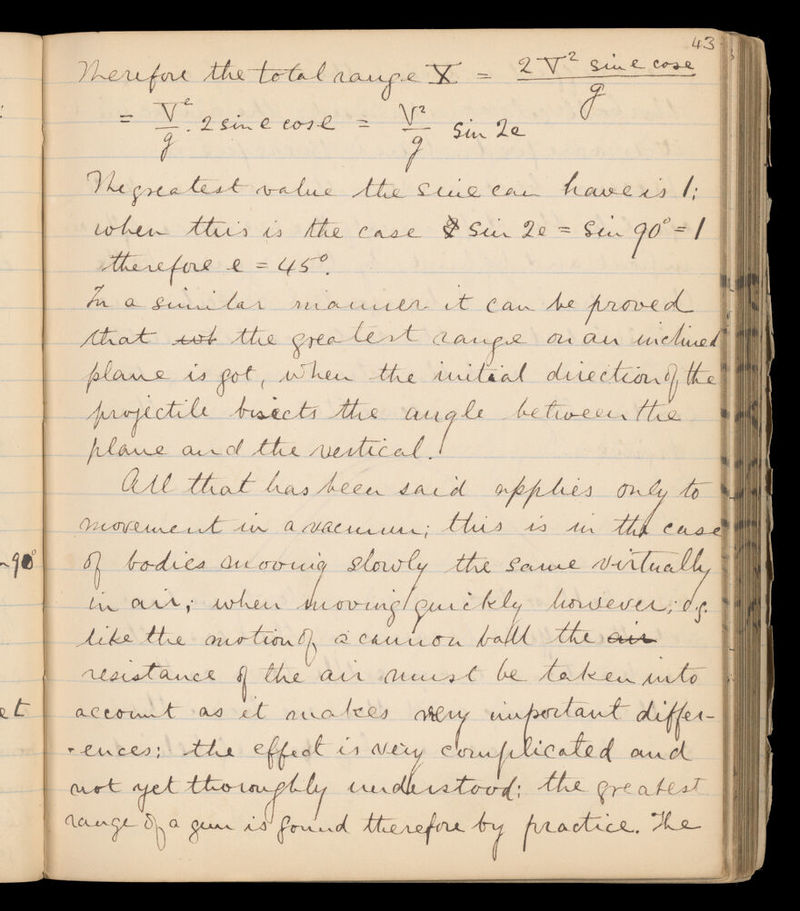 43
Therefore the total range X = 2 V² sin e cos e / g
= V²/g . 2 sin e cos e = V²/g sin 2e
The greatest value the sine can have is 1;
when this is the case sin 2e = sin 90° = 1
therefore e = 45°.
In a similar manner it can be proved
that the greatest range on an inclined
plane is got, when the initial direction of the
projectile bisects the angle between the
plane and the vertical.
All that has been said applies only to
movement in a vacuum; this is in the case
90°
of bodies moving slowly the same virtually
in air; when moving quickly however; e.g.
like the motion of a cannon ball the air
resistance of the air must be taken into
et
account as it makes very important differ-
-ences: the effect is very complicated and
not yet thoroughly understood: the greatest
range of a gun is found therefore by practice. The